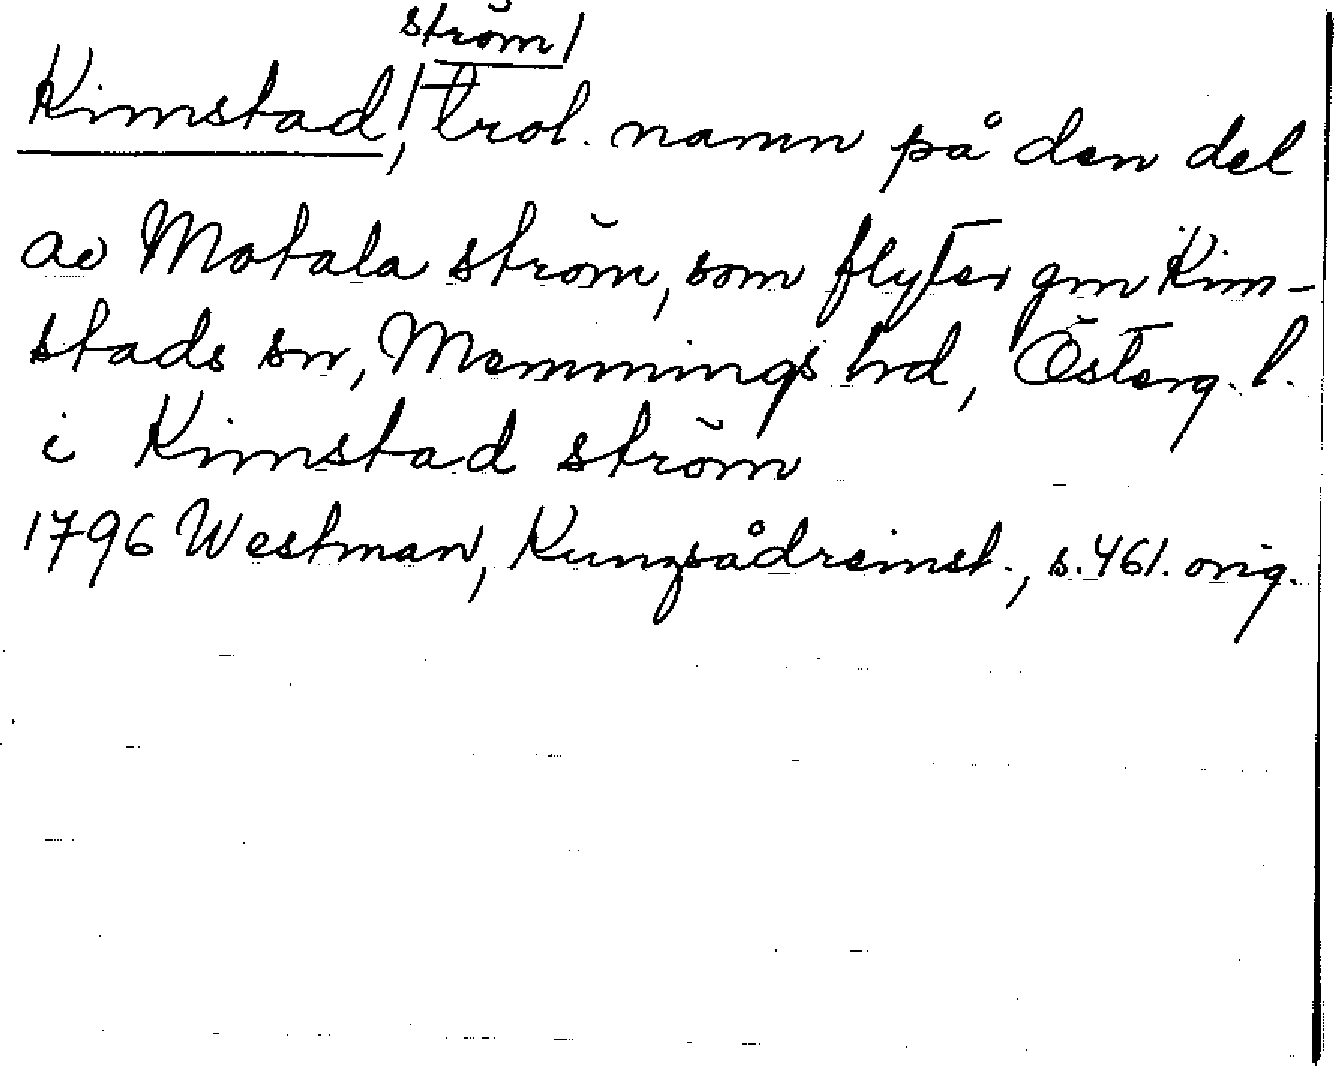 ström/
Kimstad,/ trol. namn på den del
av Motala ström, som flyter gm Kim-
stads sn, Memmings hd, Österg. l.
i Kimstad ström
1796 Westman, Kungsådreinst., s. 461. orig.